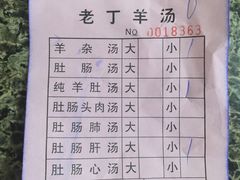 老丁羊汤
NO 0018363
羊杂汤 大 小
肚肠汤 大 小 1
纯羊肚汤 大 小 1
肚肠头肉汤 大 小
肚肠肺汤 大 小
肚肠肝汤 大 小 1
肚肠心汤 大 小